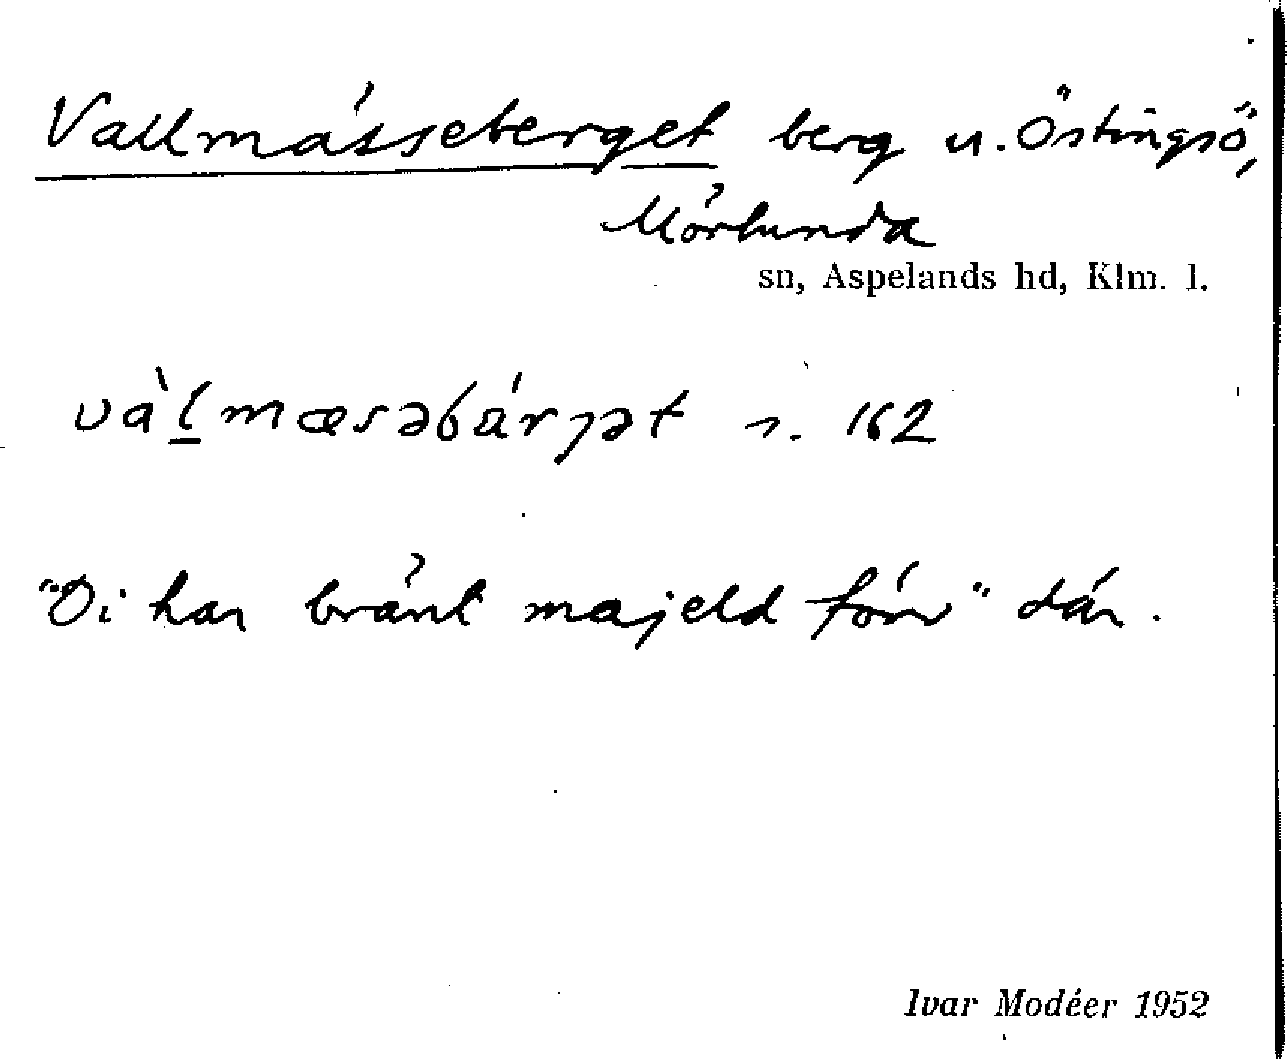 Vallmässeberget berg u. Östingsö,
Mörlunda
sn, Aspelands hd, Klm. l.
s. 162
"Di har bränt majeld förr" där.
Ivar Modéer 1952